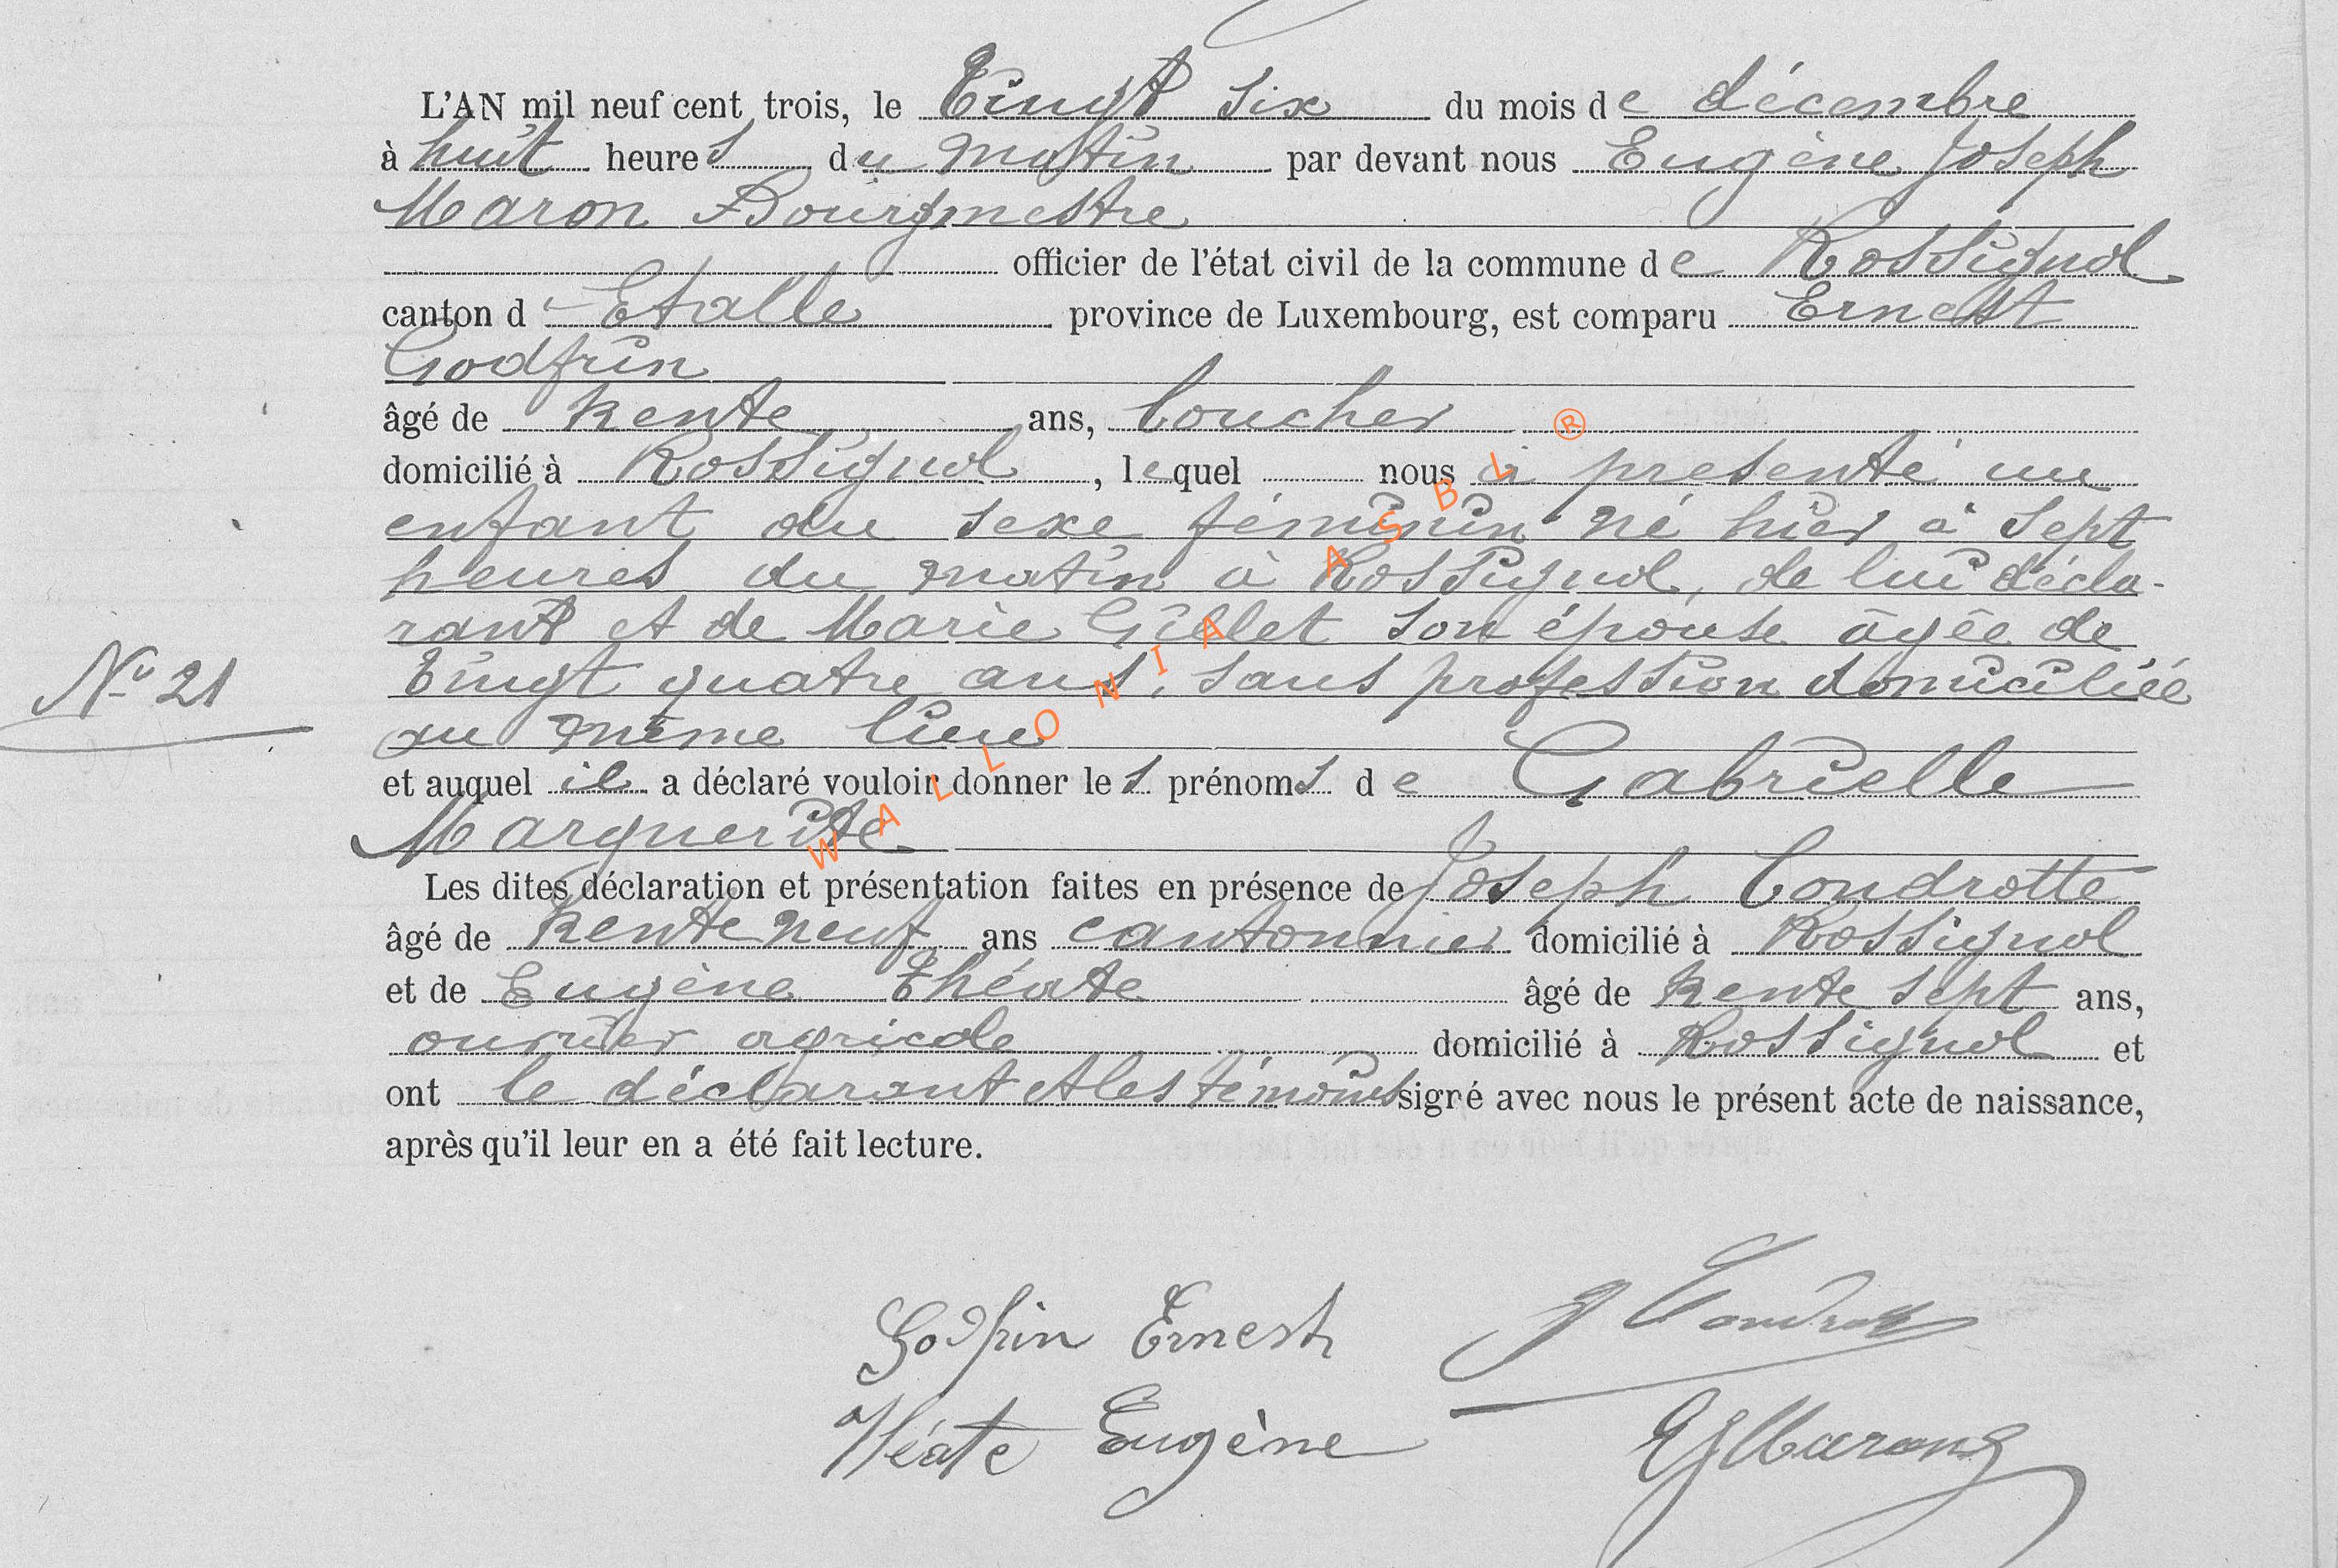 L'AN mil neuf cent trois, le Vingt six du mois de décembre
à huit heures du matin par devant nous Eugène Joseph
Maron Bourgmestre
officier de l'état civil de la commune de Rossignol
canton d'Etalle province de Luxembourg, est comparu Ernest
Godfrin
âgé de trente ans, boucher
domicilié à Rossignol, lequel nous a présenté un
enfant du sexe féminin né hier à sept
heures du matin à Rossignol, de lui décla-
rant et de Marie Gillet son épouse âgée de
Vingt quatre ans, sans profession domiciliée
au même lieu
N° 21
et auquel il a déclaré vouloir donner les prénoms de Gabrielle
Marguerite
Les dites déclaration et présentation faites en présence de Joseph Condrotte
âgé de trente neuf ans cantonnier domicilié à Rossignol
et de Eugène Théate âgé de trente sept ans,
ouvrier agricole domicilié à Rossignol et
ont le déclarant et les témoins signé avec nous le présent acte de naissance,
après qu'il leur en a été fait lecture.
Godfrin Ernest
Théate Eugène
EJMaron
WALLONIA ASBL ®